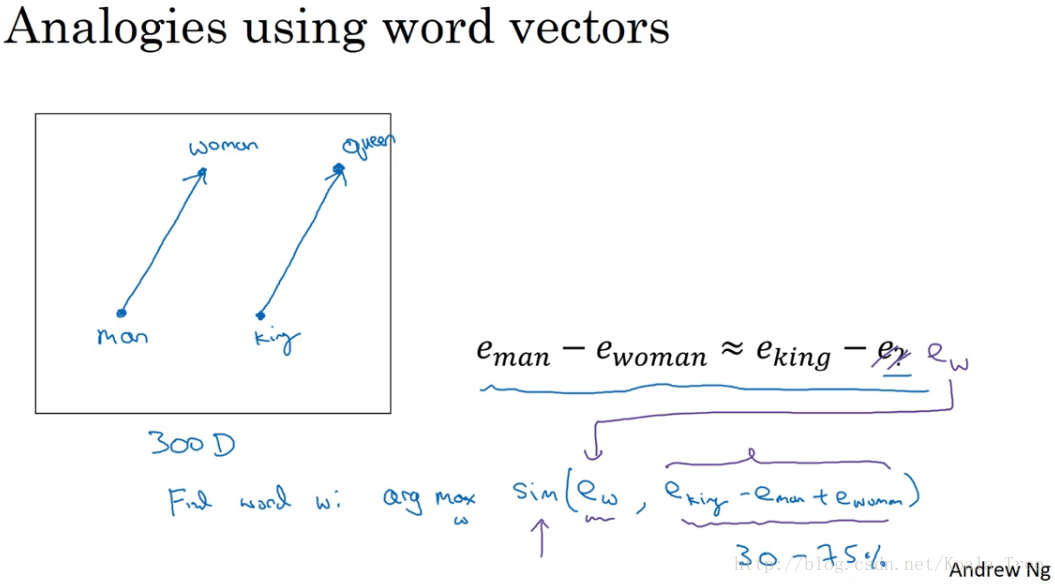 Analogies using word vectors
woman queen
man king
e_man − e_woman ≈ e_king − e_? e_w
300 D
Find word w: arg max_w sim(e_w, e_king − e_man + e_woman)
30 − 75%
Andrew Ng